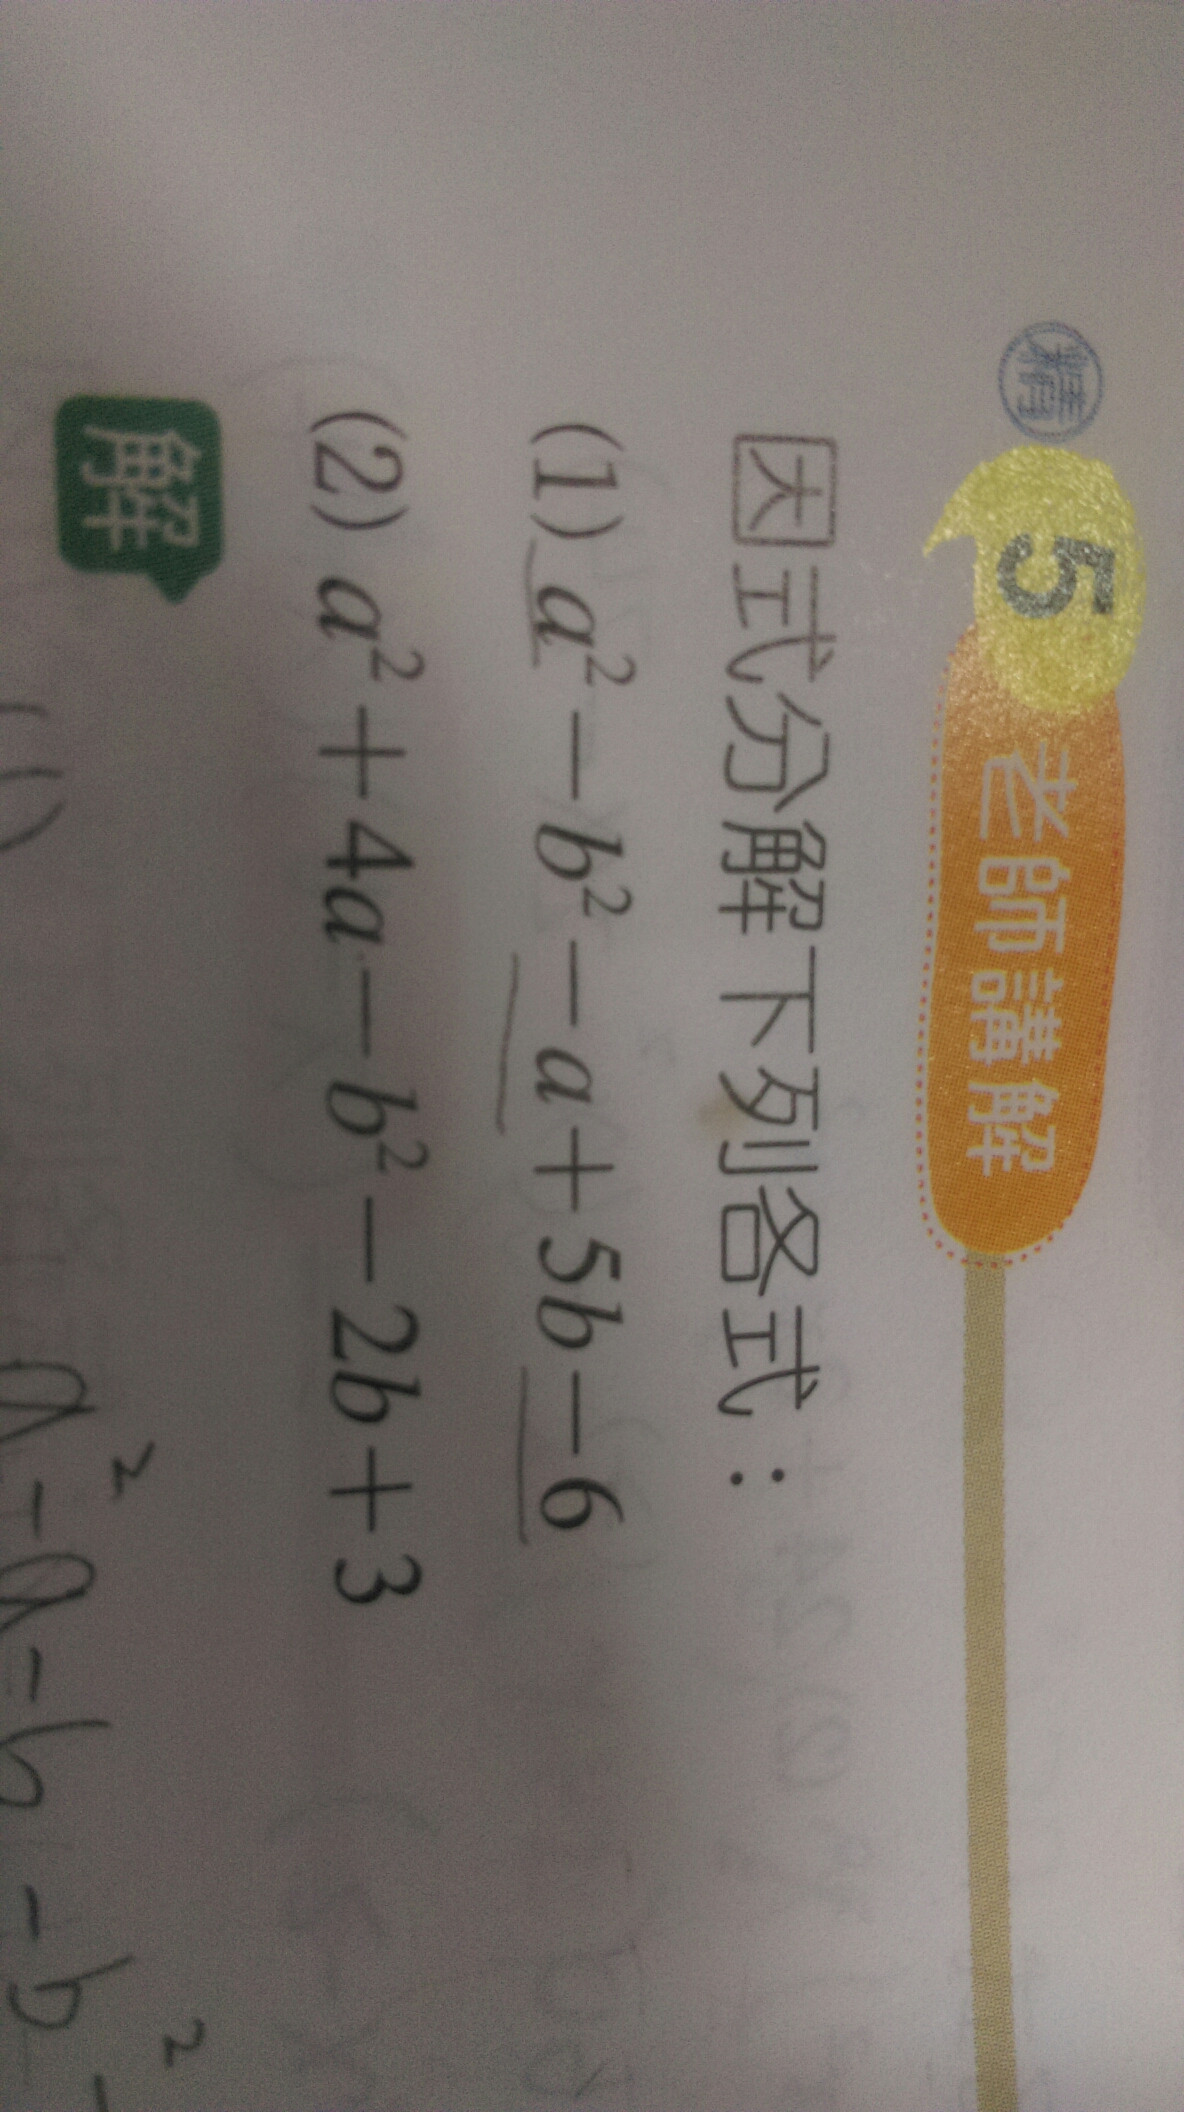 精 5 老師講解
因式分解下列各式：
(1) a² − b² − a + 5b − 6
(2) a² + 4a − b² − 2b + 3
解
(1) a² − a − b² −